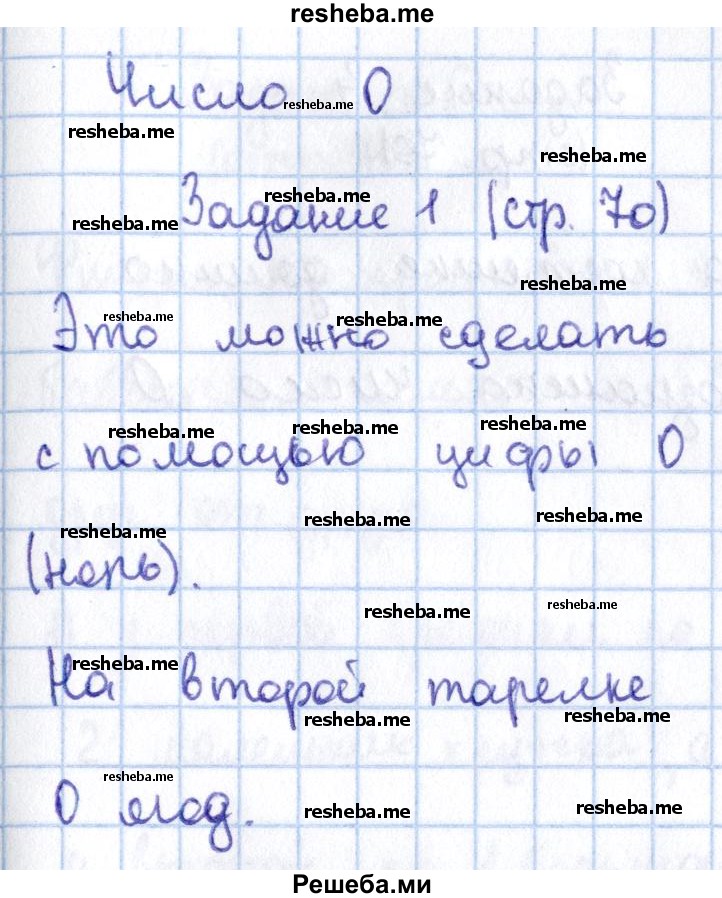 resheba.me
Число resheba.me 0
resheba.me
resheba.me
resheba.me
resheba.me
Задание 1 (стр. 70)
resheba.me
resheba.me
resheba.me
Это можно сделать
resheba.me
resheba.me
resheba.me
с помощью цифры 0
resheba.me
resheba.me
resheba.me
(ноль).
resheba.me
resheba.me
resheba.me
На второй тарелке
resheba.me
resheba.me
resheba.me
0 ягод.
resheba.me
resheba.me
Решеба.ми